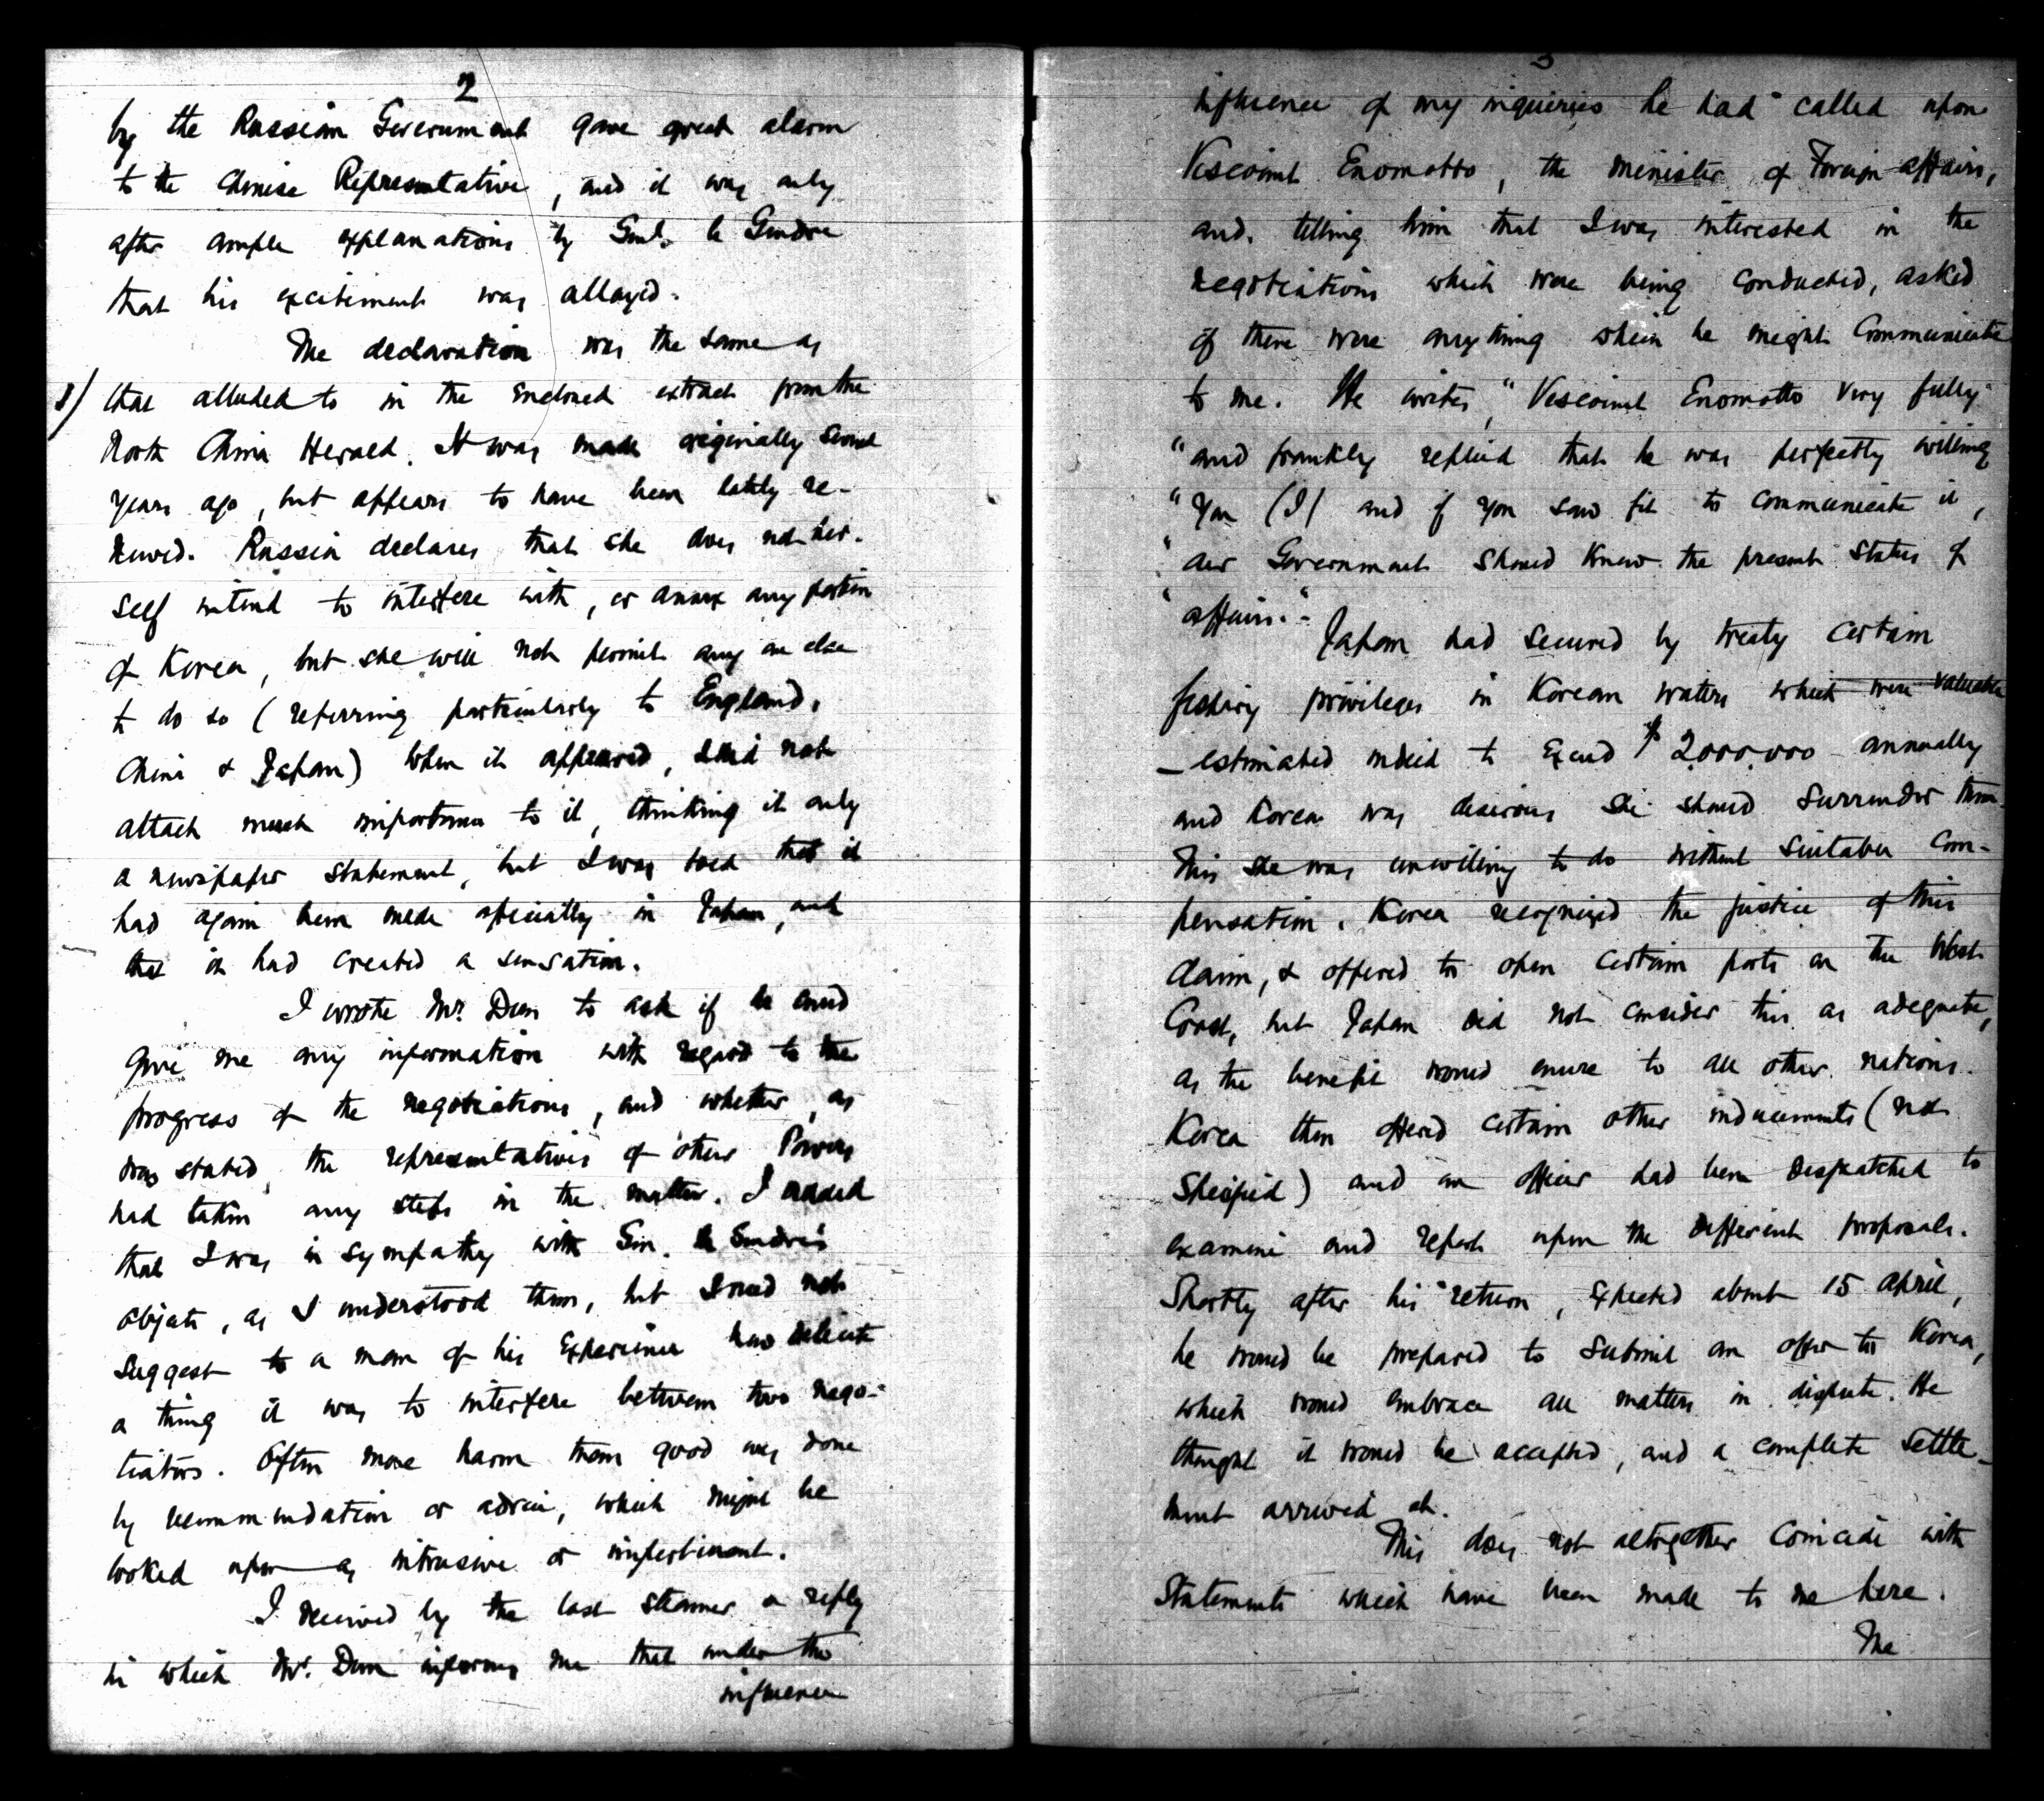 2
by the Russian Government gave great alarm
to the Chinese Representative, and it was only
after ample explanations by Genl. le Gendre
that his excitement was allayed.
The declaration was the same as
1/ that alluded to in the enclosed extract from the
North China Herald. It was made originally several
years ago, but appears to have been lately re-
newed. Russia declares that she does not her-
self intend to interfere with, or annex any portion
of Korea, but she will not permit any one else
to do so (referring particularly to England,
China & Japan) When it appeared, I did not
attach much importance to it, thinking it only
a newspaper statement, but I was told that it
had again been made officially in Japan, and
that it had created a sensation.
I wrote Mr. Dun to ask if he could
give me any information with regard to the
progress of the negotiations, and whether, as
was stated, the representatives of other Powers
had taken any steps in the matter. I added
that I was in sympathy with Gen. le Gendre's
objects, as I understood them, but I need not
suggest to a man of his experience how delicate
a thing it was to interfere between two nego-
tiators. Often more harm than good was done
by recommendation or advice, which might be
looked upon as intrusive or impertinent.
I received by the last steamer a reply
in which Mr. Dun informs me that under the
influence
3
influence of my inquiries he had "called upon
Viscount Enomotto, the minister of Foreign affairs,
and, telling him that I was interested in the
negotiations which were being conducted, asked
if there were anything which he might communicate
to me. He writes, "Viscount Enomotto very fully
"and frankly replied that he was perfectly willing
"you (I) and if you saw fit to communicate it,
"our Government should know the present status of
"affairs."-
Japan had secured by treaty certain
fishing privileges in Korean waters which were valuable
- estimated indeed to exceed $2.000.000 - annually
and Korea was desirous she should surrender them.
This she was unwilling to do without suitable com-
pensation. Korea recognized the justice of this
claim, & offered to open certain ports on the West
Coast, but Japan did not consider this as adequate,
as the benefit would enure to all other nations.
Korea then offered certain other inducements (not
specified) and an officer had been despatched to
examine and report upon the different proposals.
Shortly after his return, expected about 15 april,
he would be prepared to submit an offer to Korea,
which would embrace all matters in dispute. He
thought it would be accepted, and a complete settle-
ment arrived at.
This does not altogether coincide with
statements which have been made to me here.
The